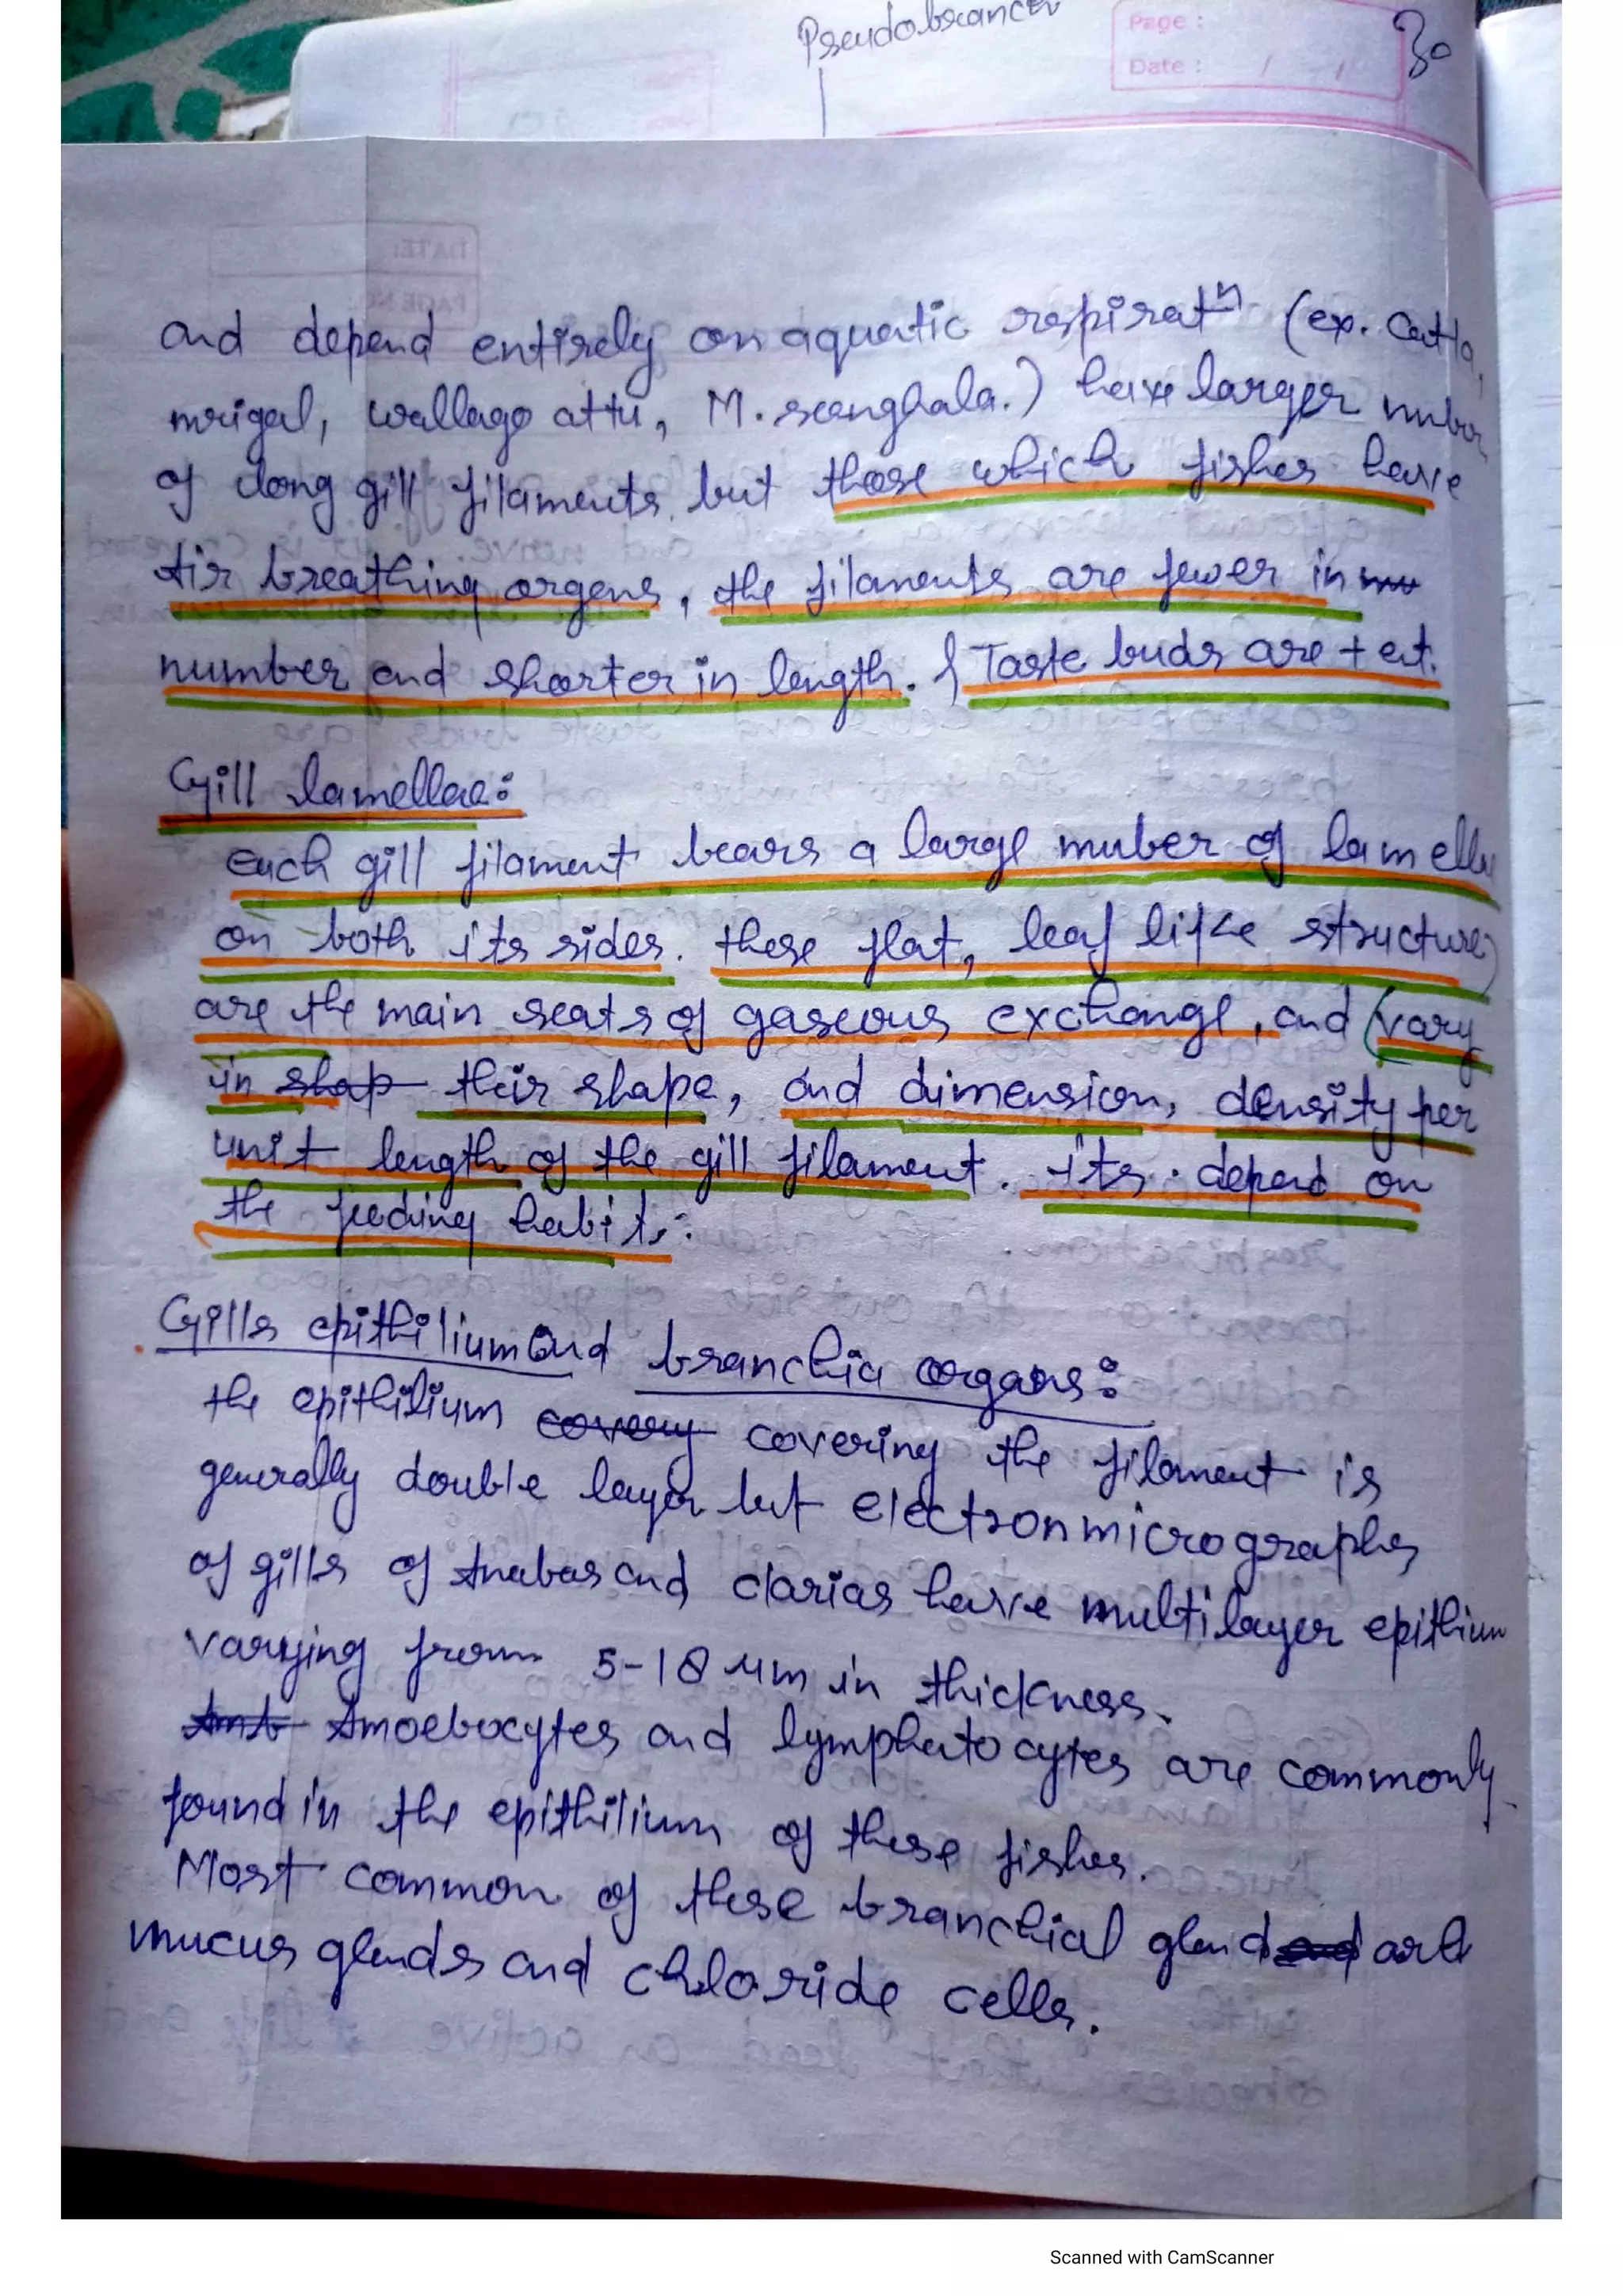 Pseudobranch
Page :
Date : / /
30
and depend entirely on aquatic respiratⁿ (ex. Catla,
mrigal, wallago attu, M. seenghala.) have larger nuber
of long gill filaments but those which fishes have
Air breathing organs, the filaments are fewer in
number and shorter in length. & Taste buds are +ent.
Gill lamellae:
Each gill filament bears a large nuber of lamellae
on both its sides. these flat, leaf like structures
are the main seats of gaseous exchange, and (vary
in shap their shape, and dimension, density per
unit length of the gill filament. its depend on
the feeding habits.
Gills epithilium and branchia organs:
the epithilium covery covering the filament is
generally double layer but electron micrographs
of gills of Anabas and clarias have multilayer epithium
varying from 5-18 μm in thickness.
Amb Amoebocytes and lymphatocytes are commonly
found in the epithilium of these fishes.
Most common of these branchial gland and are
mucus glands and chloride cells.
Scanned with CamScanner